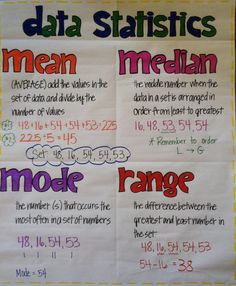 data Statistics
mean
(AVERAGE) add the values in
the set of data and divide by the
number of values
48+16+54+54+53=225
225÷5=45
Set: 48, 16, 54, 54, 53
median
the middle number when the
data in a set is arranged in
order from least to greatest
16, 48, 53, 54, 54
* Remember to order
L → G
mode
the number(s) that occurs the
most often in a set of numbers
48, 16, 54, 53
Mode = 54
range
the difference between the
greatest and least number in
the set.
48, 16, 54, 54, 53
54-16=38